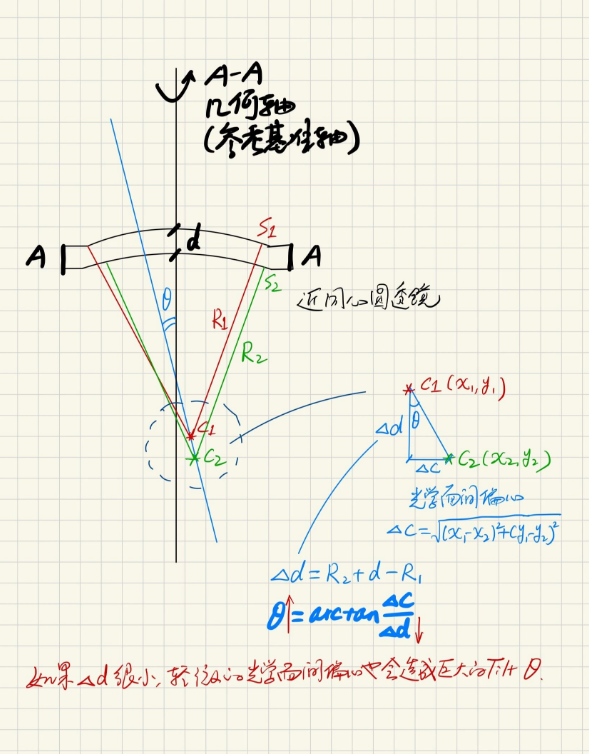 A-A
几何轴
(参考基准轴)
A
d
S1
A
S2
θ
R1
R2
近同心圆透镜
C1
C2
C1(x1,y1)
Δd
θ
ΔC
C2(x2,y2)
光学面间偏心
ΔC=√(x1-x2)²+(y1-y2)²
Δd=R2+d-R1
θ↑=arctan ΔC/Δd↓
如果Δd很小,轻微的光学面间偏心也会造成巨大的Tilt θ.